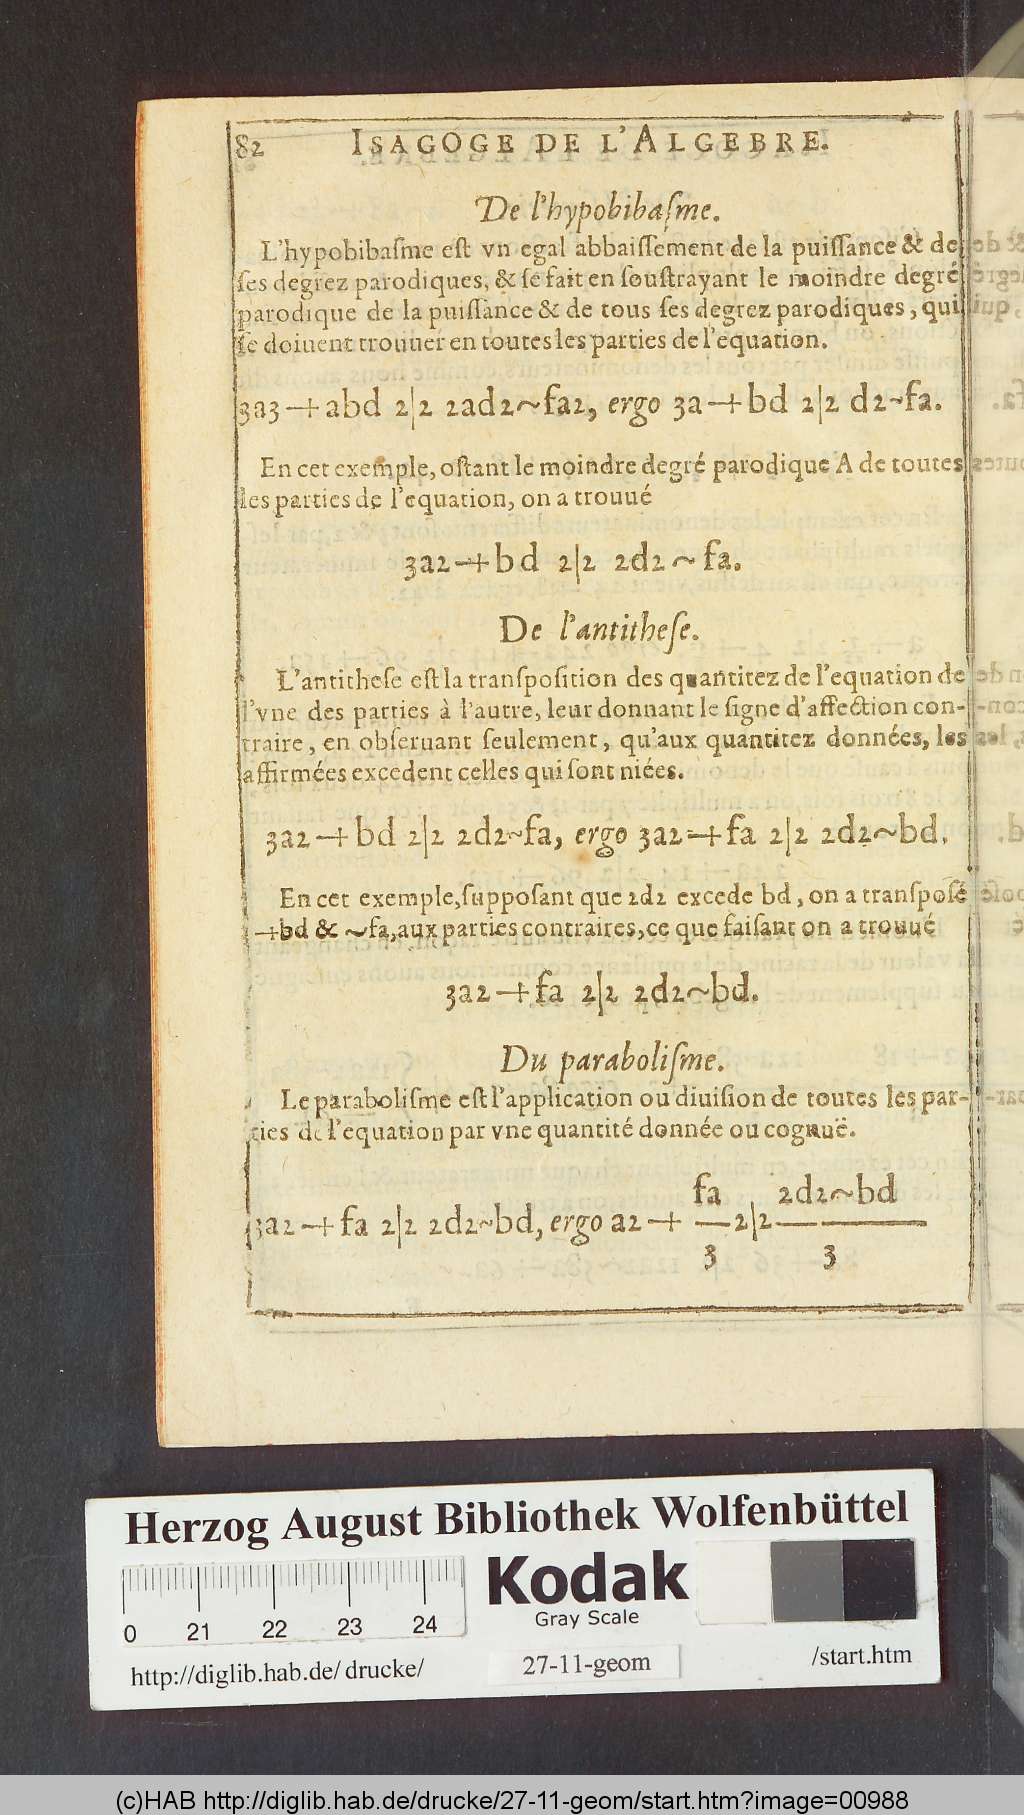 82 ISAGOGE DE L'ALGEBRE.
De l'hypobibaſme.
L'hypobibaſme eſt vn egal abbaiſſement de la puiſſance & de
ſes degrez parodiques, & ſe fait en ſouſtrayant le moindre degré
parodique de la puiſſance & de tous ſes degrez parodiques, qui
ſe doiuent trouuer en toutes les parties de l'equation.
3a3 + abd 2|2 2ad2 ~ fa2, ergo 3a + bd 2|2 d2 ~ fa.
En cet exemple, oſtant le moindre degré parodique A de toutes
les parties de l'equation, on a trouué
3a2 + bd 2|2 2d2 ~ fa.
De l'antitheſe.
L'antitheſe eſt la tranſpoſition des quantitez de l'equation de
l'vne des parties à l'autre, leur donnant le ſigne d'affection con-
traire, en obſeruant ſeulement, qu'aux quantitez données, les
affirmées excedent celles qui ſont niées.
3a2 + bd 2|2 2d2 ~ fa, ergo 3a2 + fa 2|2 2d2 ~ bd.
En cet exemple, ſuppoſant que 2d2 excede bd, on a tranſpoſé
+ bd & ~ fa, aux parties contraires, ce que faiſant on a trouué
3a2 + fa 2|2 2d2 ~ bd.
Du paraboliſme.
Le paraboliſme eſt l'application ou diuiſion de toutes les par-
ties de l'equation par vne quantité donnée ou cognuë.
fa 2d2 ~ bd
3a2 + fa 2|2 2d2 ~ bd, ergo a2 + — 2|2 —
3 3
Herzog August Bibliothek Wolfenbüttel
Kodak
Gray Scale
0 21 22 23 24
http://diglib.hab.de/drucke/ 27-11-geom /start.htm
(c)HAB http://diglib.hab.de/drucke/27-11-geom/start.htm?image=00988